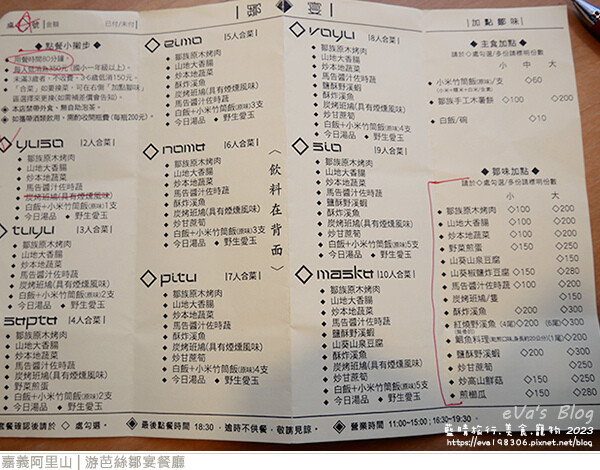 桌 號 金額 已付/未付
◆ 點餐小撇步 ◆
用餐時間80分鐘
每人低消為350元(國小一年級以上)。
未滿3歲者，不收費，3-6歲低消150元。
「合菜」如要換菜，可在右側「加點鄒味」
區選擇來更換(如需補差價會告知)。
本店禁帶外食，無自助泡茶。
如攜帶酒類飲用，需酌收開瓶費(每瓶200元)。
yuso |2人合菜|
鄒族原木烤肉
山地大香腸
炒本地蔬菜
馬告醬汁佐時蔬
炭烤班鳩(具有煙燻風味)
白飯+小米竹筒飯(原味)2支
今日湯品 ◆ 野生愛玉
tuyu |3人合菜|
鄒族原木烤肉
山地大香腸
炒本地蔬菜
馬告醬汁佐時蔬
炭烤班鳩(具有煙燻風味)
白飯+小米竹筒飯(原味)2支
今日湯品 ◆ 野生愛玉
supto |4人合菜|
鄒族原木烤肉
山地大香腸
炒本地蔬菜
馬告醬汁佐時蔬
炭烤班鳩(具有煙燻風味)
野菜煎蛋
白飯+小米竹筒飯(原味)3支
今日湯品 ◆ 野生愛玉
eimo |5人合菜|
鄒族原木烤肉
山地大香腸
炒本地蔬菜
酥炸溪魚
炭烤班鳩(具有煙燻風味)
馬告醬汁佐時蔬
白飯+小米竹筒飯(原味)3支
今日湯品 ◆ 野生愛玉
nomo |6人合菜|
鄒族原木烤肉
山地大香腸
炒本地蔬菜
馬告醬汁佐時蔬
酥炸溪魚
炭烤班鳩(具有煙燻風味)
炒甘蔗筍
白飯+小米竹筒飯(原味)4支
今日湯品 ◆ 野生愛玉
pitu |7人合菜|
鄒族原木烤肉
山地大香腸
炒本地蔬菜
馬告醬汁佐時蔬
酥炸溪魚
炭烤班鳩(具有煙燻風味)
炒甘蔗筍
白飯+小米竹筒飯(原味)4支
今日湯品 ◆ 野生愛玉
|鄒|宴|
〈飲料在背面〉
voyu |8人合菜|
鄒族原木烤肉
山地大香腸
炒本地蔬菜
鹽酥野溪蝦
酥炸溪魚
炭烤班鳩(具有煙燻風味)
馬告醬汁佐時蔬
白飯+小米竹筒飯(原味)4支
今日湯品 ◆ 野生愛玉
sio |9人合菜|
鄒族原木烤肉
山地大香腸
炒本地蔬菜
馬告醬汁佐時蔬
鹽酥野溪蝦
酥炸溪魚
炭烤班鳩(具有煙燻風味)
炒甘蔗筍
白飯+小米竹筒飯(原味)5支
今日湯品 ◆ 野生愛玉
mosku |10人合菜|
鄒族原木烤肉
山地大香腸
炒本地蔬菜
馬告醬汁佐時蔬
鹽酥野溪蝦
山葵山泉豆腐
酥炸溪魚
炭烤班鳩(具有煙燻風味)
炒甘蔗筍
白飯+小米竹筒飯(原味)5支
今日湯品 ◆ 野生愛玉
|加點鄒味|
◆ 主食加點 ◆
請於◇處勾選/多份請標明份數
小 中 大
小米竹筒飯(原味)/支 ◇60
(小米+糯米+白米/含量)
鄒族手工木薯餅 ◇100 ◇200
白飯/碗 ◇10
◆ 鄒味加點 ◆
請於◇處勾選/多份請標明份數
小 大
鄒族原木烤肉 ◇100 ◇200
山地大香腸 ◇100 ◇200
炒本地蔬菜 ◇100 ◇200
野菜煎蛋 ◇150 ◇250
山葵山泉豆腐 ◇150
山葵椒鹽炸豆腐 ◇150 ◇280
馬告醬汁佐時蔬 ◇100 ◇200
炭烤班鳩/隻 ◇150
酥炸溪魚 ◇200 ◇300
紅燒野溪魚 (4尾)◇200 (6尾)◇300
鯝魚料理 ◇200
鹽酥野溪蝦 ◇200 ◇300
炒甘蔗筍 ◇200
炒高山鮮菇 ◇150 ◇250
煎櫛瓜 ◇150 ◇280
點餐確認後請於 ◇ 處勾選。 ◆ 最後點餐時間 18:30，逾時不供餐，敬請見諒。 ◆ 營業時間 11:00-15:00；16:30-19:30。
eva's Blog
藍晴旅行.美食.寵物 2023
https://eva198306.pixnet.net/blog
嘉義阿里山｜游芭絲鄒宴餐廳